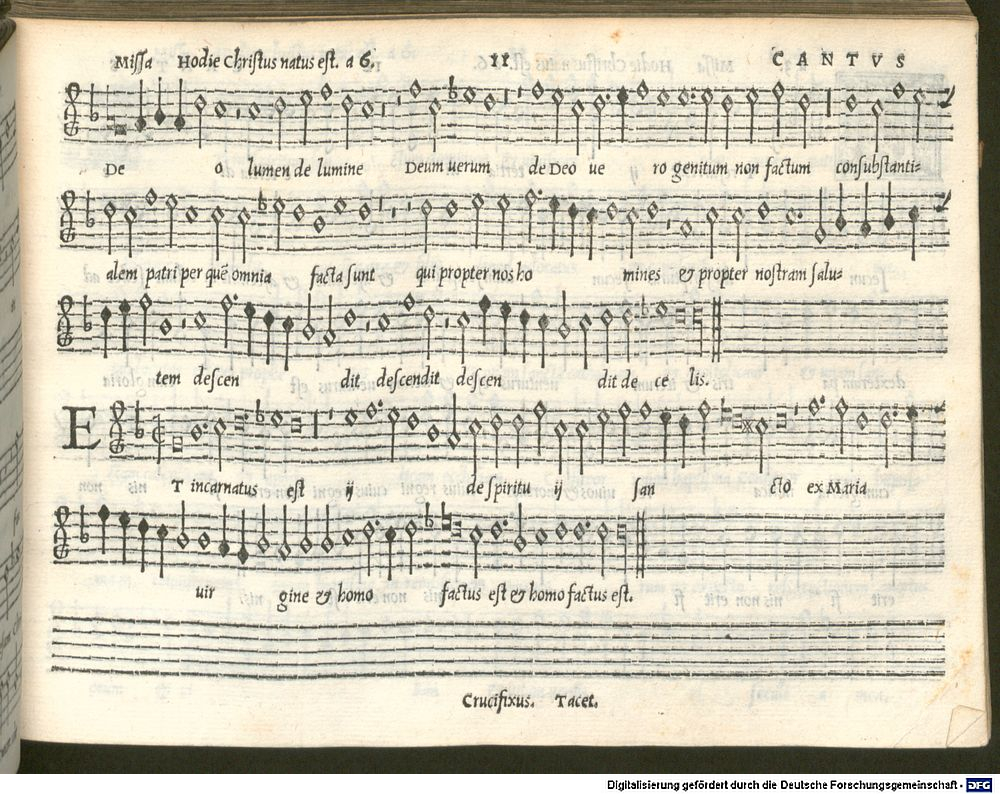 Missa Hodie Christus natus est. a 6. 11 CANTVS
De o lumen de lumine Deum uerum de Deo ue ro genitum non factum consubstanti=
alem patri per quē omnia facta sunt qui propter nos ho mines & propter nostram salu=
tem descen dit descendit descen dit de ce lis.
ET incarnatus est ij de spiritu ij san cto ex Maria
uir gine & homo factus est & homo factus est.
Crucifixus. Tacet.
Digitalisierung gefördert durch die Deutsche Forschungsgemeinschaft - DFG